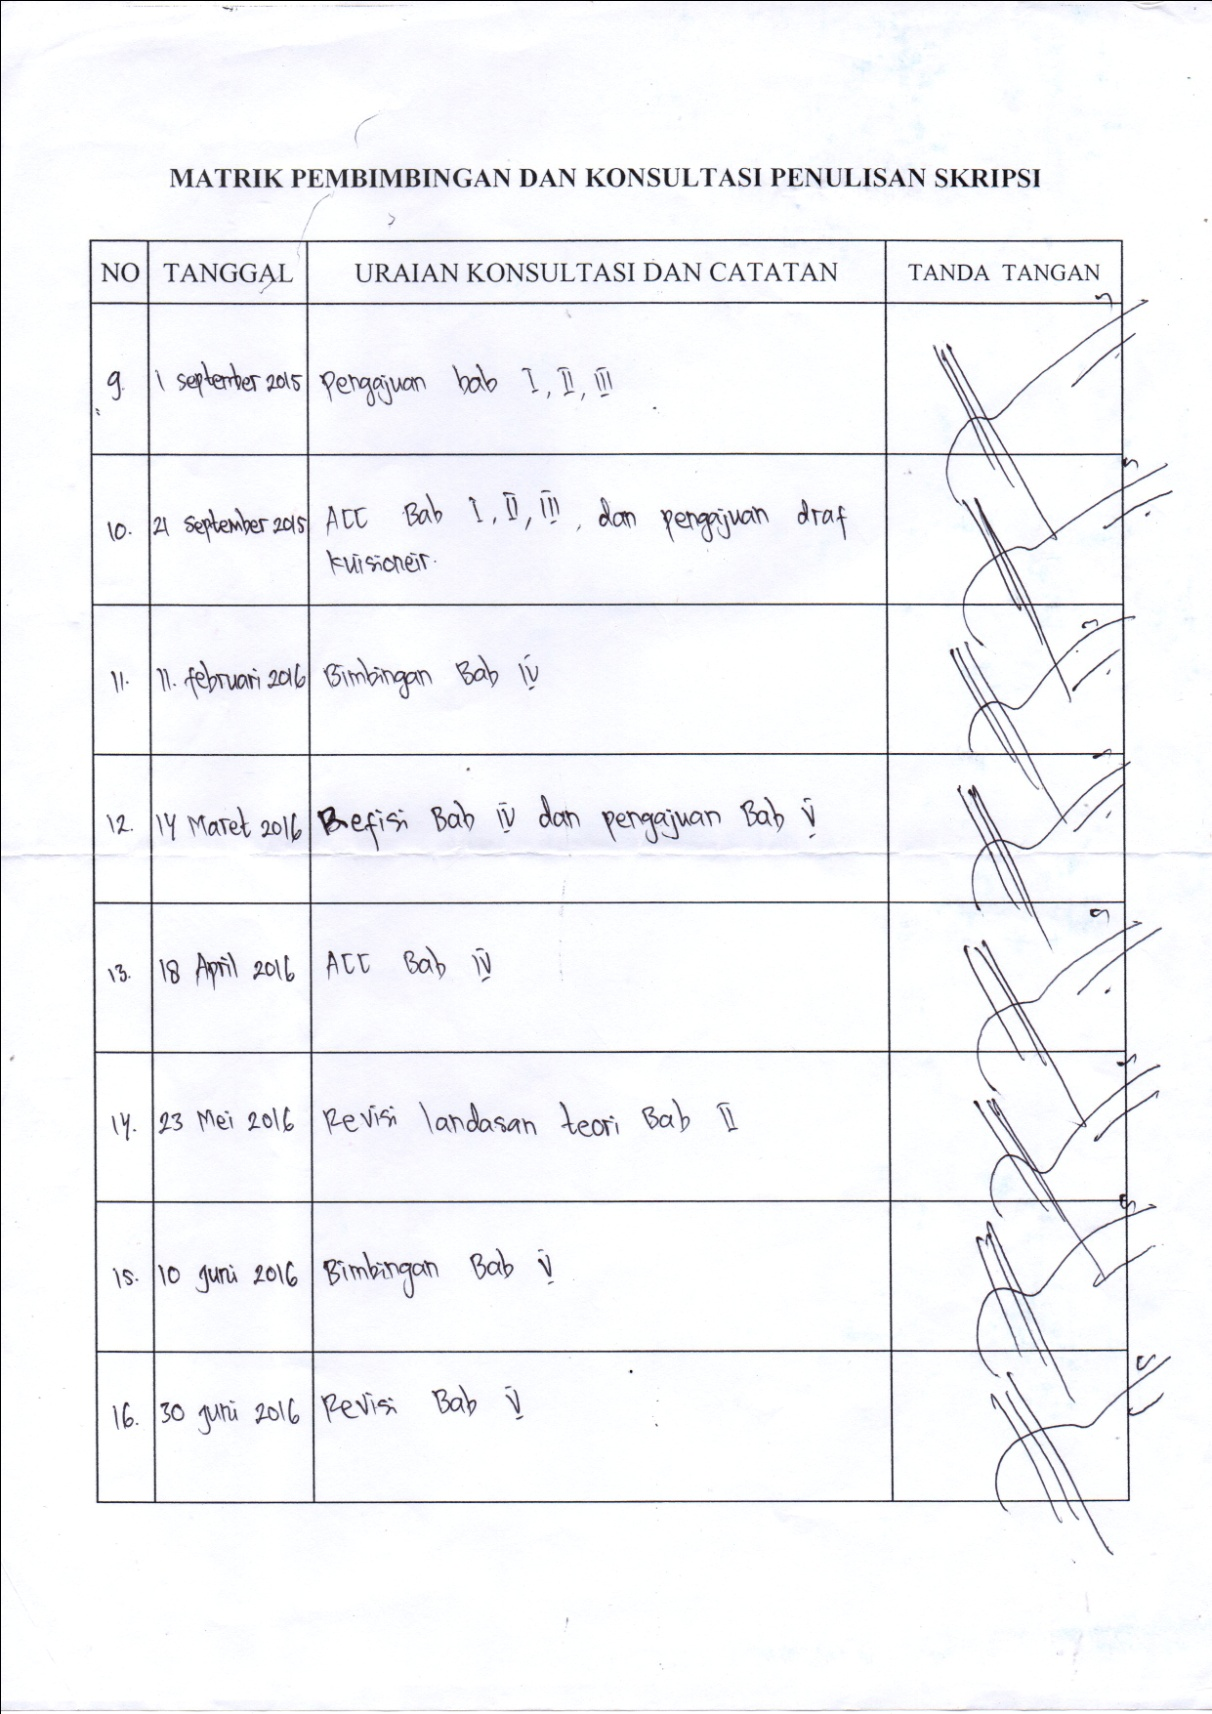 MATRIK PEMBIMBINGAN DAN KONSULTASI PENULISAN SKRIPSI
NO TANGGAL URAIAN KONSULTASI DAN CATATAN TANDA TANGAN
9. 1 september 2015 Pengajuan bab I, II, III
10. 21 September 2015 ACC Bab I, II, III, dan pengajuan draf
kuisioneir.
11. 11. februari 2016 Bimbingan Bab IV
12. 14 Maret 2016 Refisi Bab IV dan pengajuan Bab V
13. 18 April 2016 ACC Bab IV
14. 23 Mei 2016 Revisi landasan teori Bab II
15. 10 juni 2016 Bimbingan Bab V
16. 30 juni 2016 Revisi Bab V